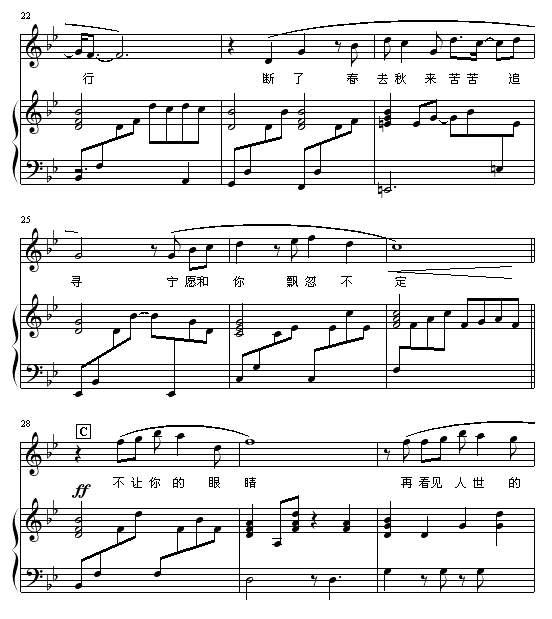 22
行 断 了 春 去 秋 来 苦 苦 追
25
寻 宁 愿 和 你 飘 忽 不 定
28
C
不 让 你 的 眼 睛 再 看 见 人 世 的
ff